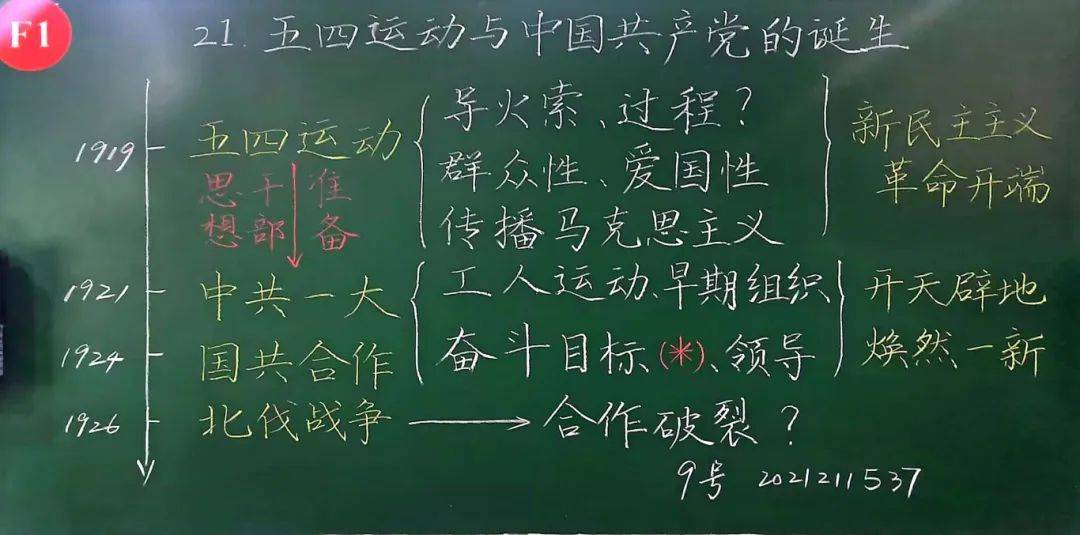 F1
21. 五四运动与中国共产党的诞生
1919
五四运动
导火索、过程?
群众性、爱国性
传播马克思主义
新民主主义
革命开端
思干准
想部备
1921
中共一大
工人运动、早期组织
开天辟地
1924
国共合作
奋斗目标(*)、领导
焕然一新
1926
北伐战争
合作破裂?
9号 2021211537